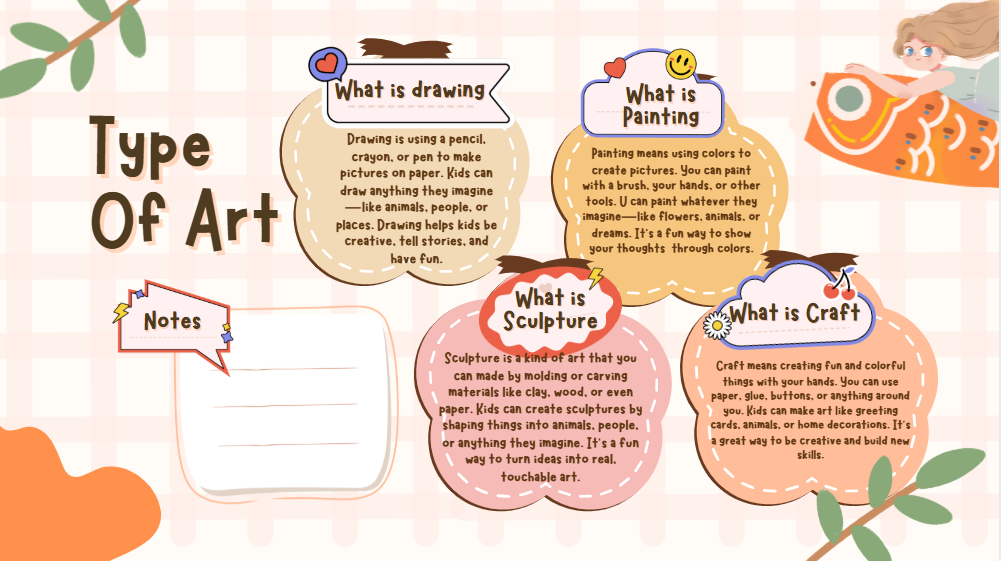 Type
Of Art
What is drawing
Drawing is using a pencil,
crayon, or pen to make
pictures on paper. Kids can
draw anything they imagine
—like animals, people, or
places. Drawing helps kids be
creative, tell stories, and
have fun.
What is
Painting
Painting means using colors to
create pictures. You can paint
with a brush, your hands, or other
tools. U can paint whatever they
imagine—like flowers, animals, or
dreams. It's a fun way to show
your thoughts through colors.
Notes
What is
Sculpture
Sculpture is a kind of art that you
can made by molding or carving
materials like clay, wood, or even
paper. Kids can create sculptures by
shaping things into animals, people,
or anything they imagine. It's a fun
way to turn ideas into real,
touchable art.
What is Craft
Craft means creating fun and colorful
things with your hands. You can use
paper, glue, buttons, or anything around
you. Kids can make art like greeting
cards, animals, or home decorations. It's
a great way to be creative and build new
skills.